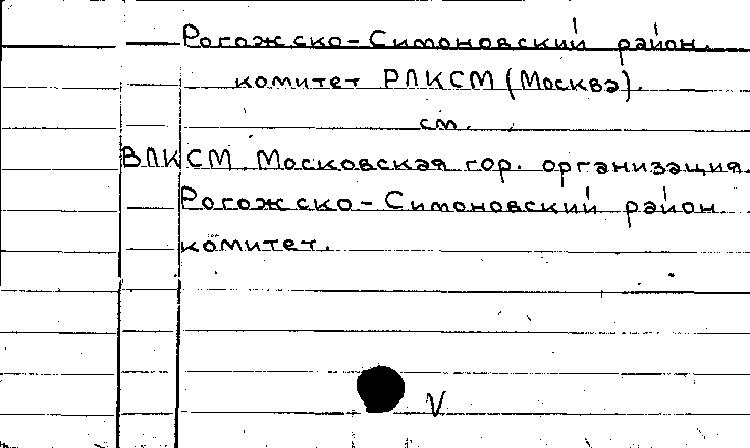 Рогожско-Симоновский район.
комитет РЛКСМ (Москва).
см.
ВЛКСМ. Московская гор. организация.
Рогожско-Симоновский район
комитет.
V